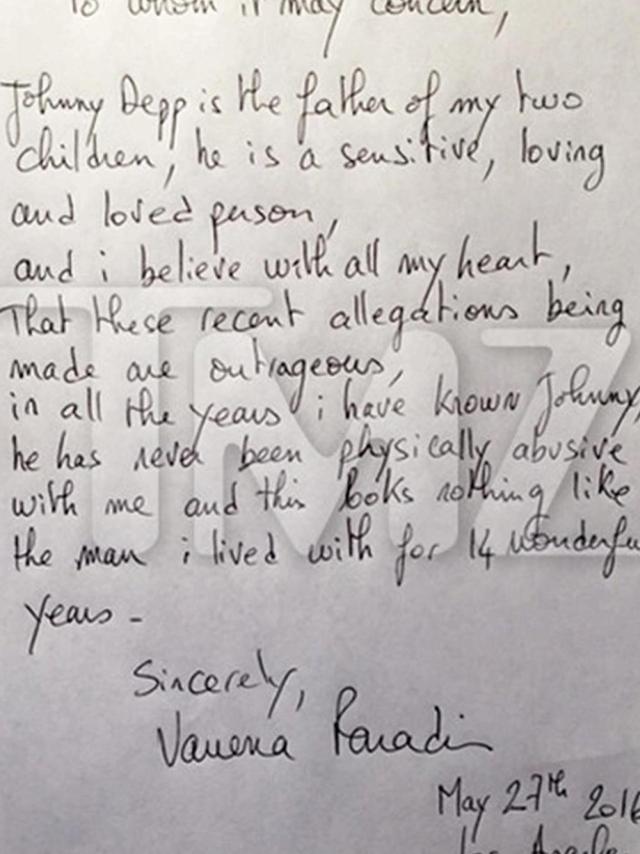 To whom it may concern,
Johnny Depp is the father of my two
children, he is a sensitive, loving
and loved person,
and i believe with all my heart,
That these recent allegations being
made are outrageous,
in all the years i have known Johnny,
he has never been physically abusive
with me and this looks nothing like
the man i lived with for 14 wonderfu
years -
Sincerely,
Vanessa Paradis
May 27th 2016
Los Angeles
TMZ